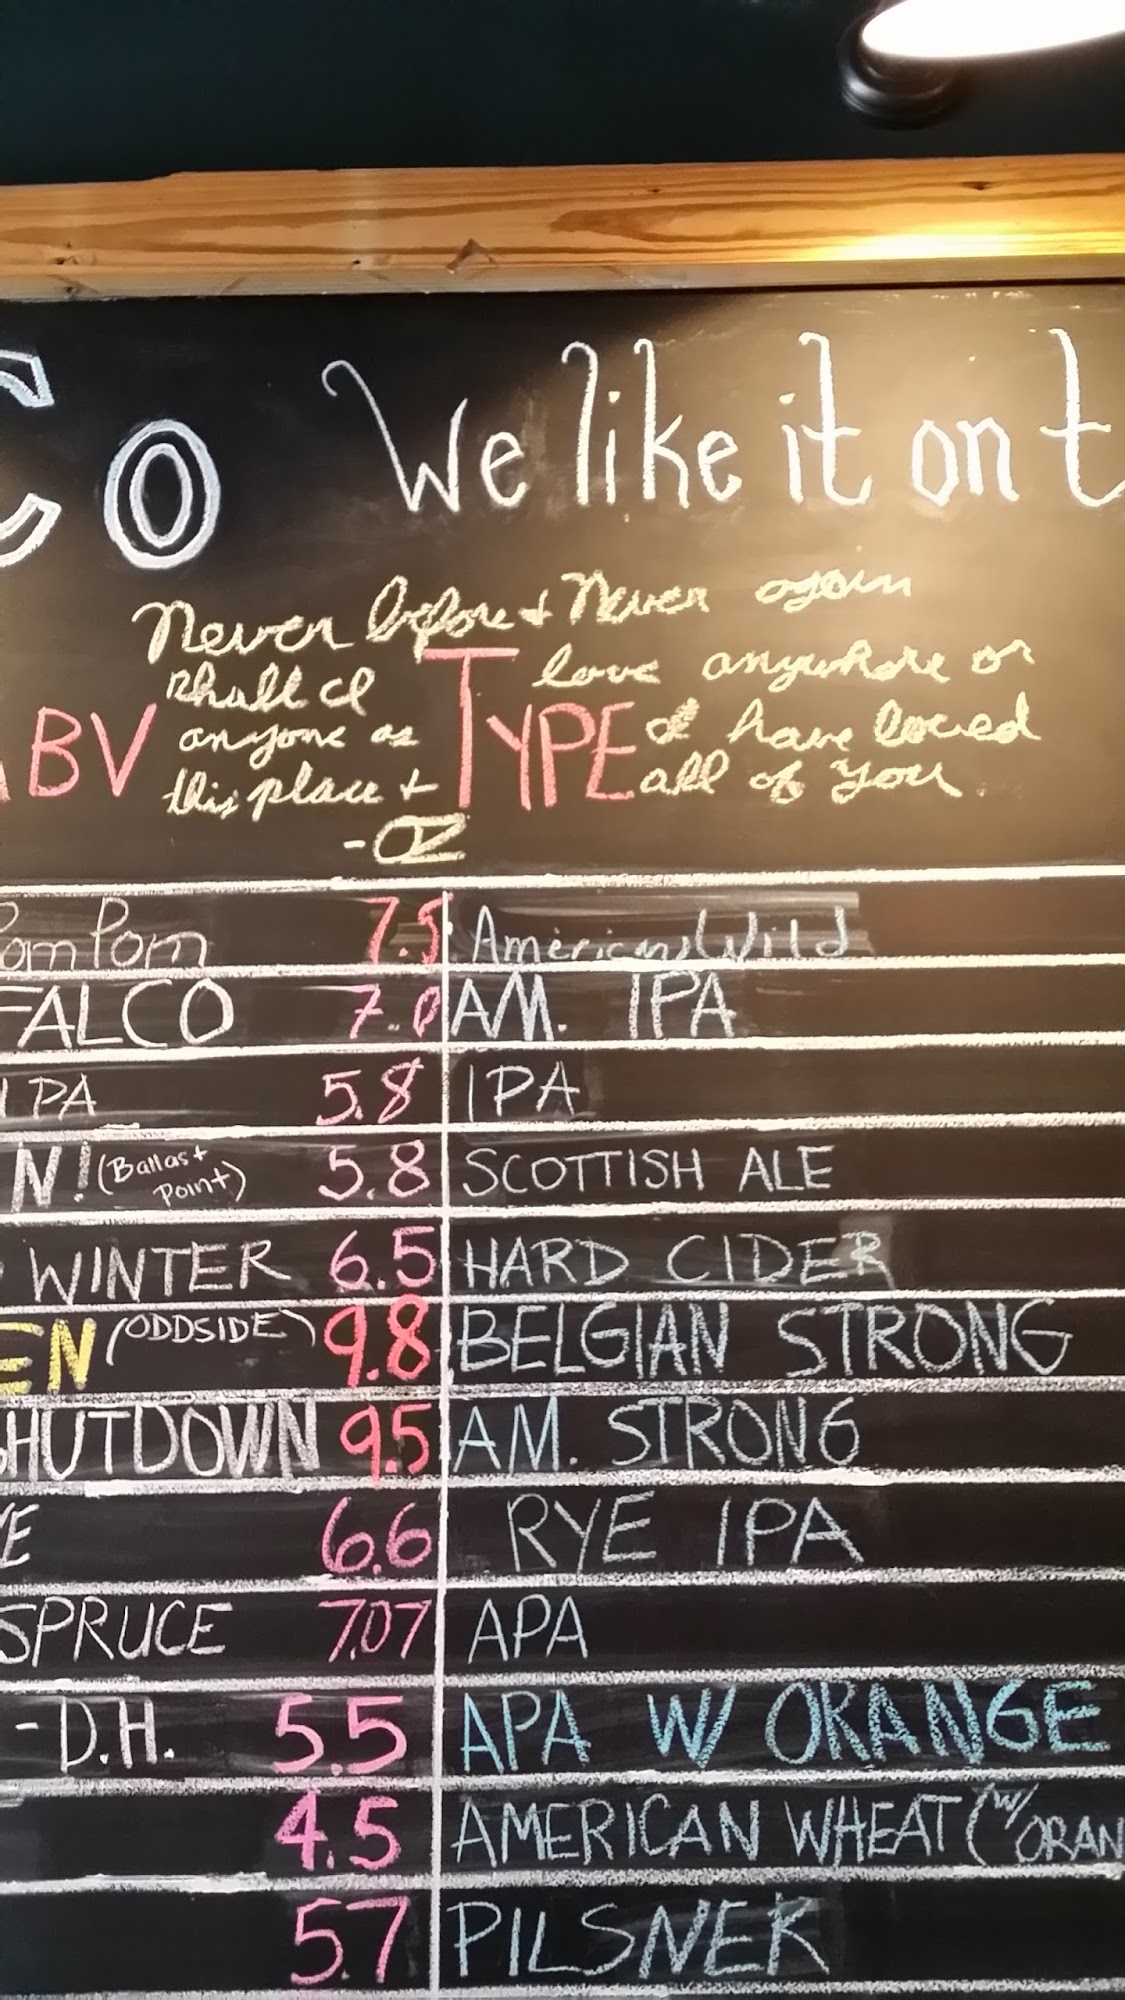 Co We like it on t
Never before + Never again
shall I love anywhere or
anyone as I have loved
this place + all of you.
-OZ
ABV TYPE
PomPom 7.5 American Wild
FALCO 7.0 AM. IPA
IPA 5.8 IPA
N! (Ballast Point) 5.8 SCOTTISH ALE
WINTER 6.5 HARD CIDER
EN (ODDSIDE) 9.8 BELGIAN STRONG
SHUTDOWN 9.5 AM. STRONG
YE 6.6 RYE IPA
SPRUCE 7.07 APA
-D.H. 5.5 APA W/ ORANGE
4.5 AMERICAN WHEAT (w/ ORAN
5.7 PILSNER